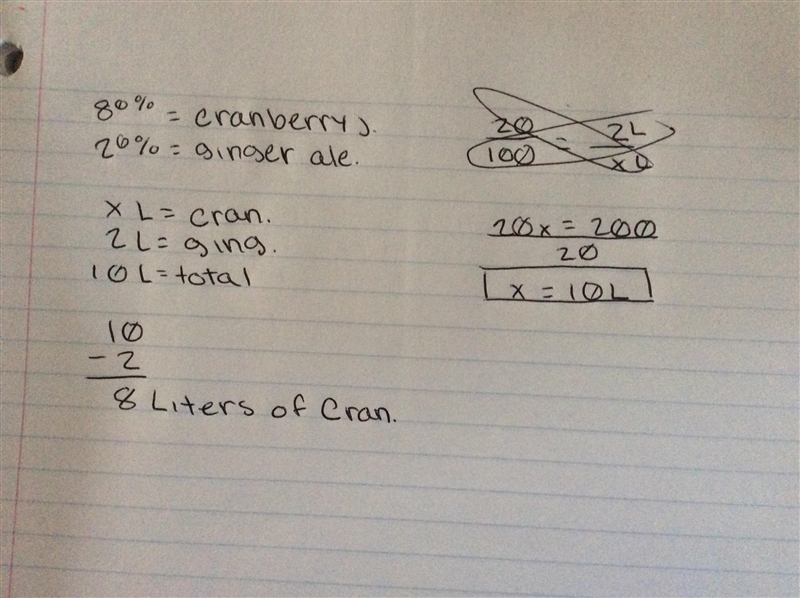 80% = cranberry j.
20% = ginger ale.
x L = cran.
2 L = ging.
10 L = total
10
- 2
8 Liters of Cran.
20/100 = 2L/xL
20x = 200
20
x = 10L